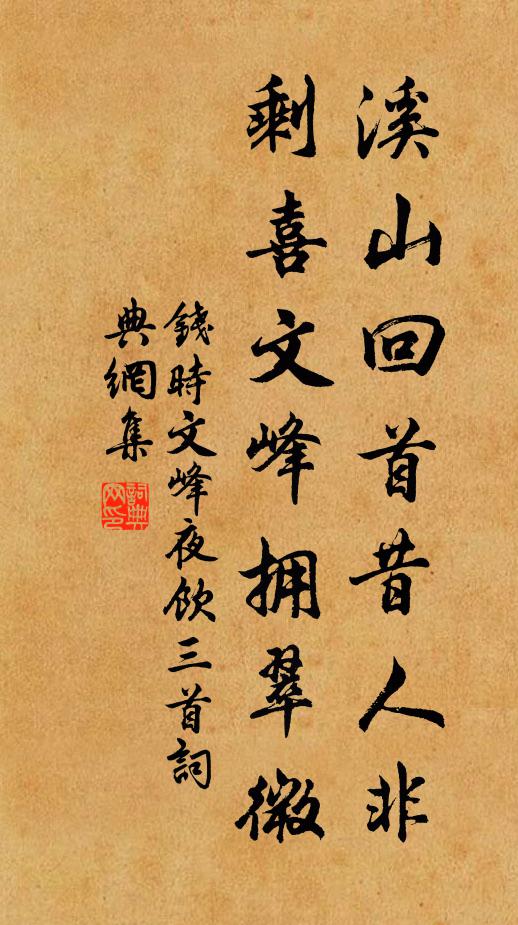 溪山回首昔人非
剩喜文峰拥翠微
錢時文峰夜飲三首詞
典網集
詞典
网印